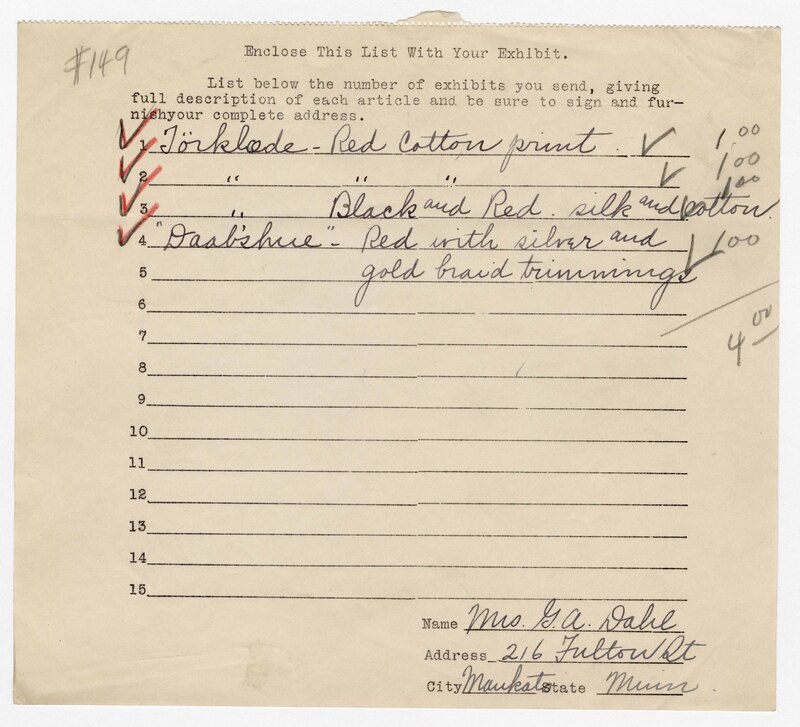 #149
Enclose This List With Your Exhibit.
List below the number of exhibits you send, giving
full description of each article and be sure to sign and fur-
nishyour complete address.
1 Törklæde - Red Cotton print. 1.00
2 " " " 1.00
3 " Black and Red. silk and Cotton 1.00
4 "Daab'shue" - Red with silver and 1.00
5 gold braid trimmings
4.00
6
7
8
9
10
11
12
13
14
15
Name Mrs. G. A. Dahl
Address 216 Fulton St
City Mankato State Minn.